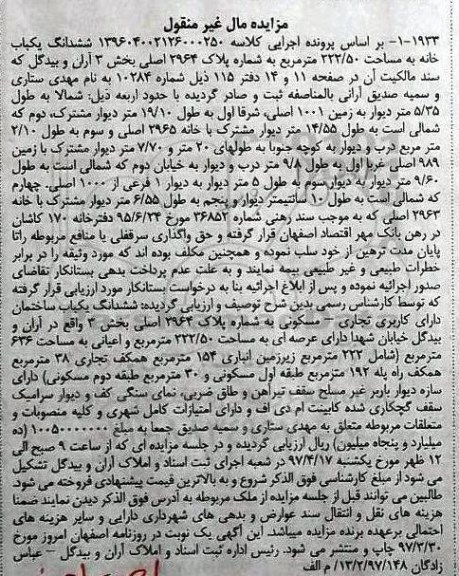 مزایده مال غیر منقول
۱۹۳۳-۱- بر اساس پرونده اجرایی کلاسه ۱۳۹۶۰۴۰۰۲۱۲۶۰۰۰۲۵۰ ششدانگ یکباب
خانه به مساحت ۲۲۲/۵۰ مترمربع به شماره پلاک ۲۹۶۴ اصلی بخش ۳ آران و بیدگل که
سند مالکیت آن در صفحه ۱۱ و ۱۴ دفتر ۱۱۵ ذیل شماره ۱۰۲۸۴ به نام مهدی ستاری
و سمیه صدیق آرانی بالمناصفه ثبت و صادر گردیده با حدود اربعه ذیل: شمالا به طول
۵/۳۵ متر دیوار به زمین ۱۰۰۱ اصلی، شرقا اول به طول ۱۹/۱۰ متر دیوار مشترک، دوم که
شمالی است به طول ۱۴/۵۵ متر دیوار مشترک با خانه ۲۹۶۵ اصلی و سوم به طول ۲/۱۰
متر مربع درب و دیوار به کوچه جنوبا به طولهای ۲۰ متر و ۷/۷۰ متر دیوار مشترک با زمین
۹۸۹ اصلی غربا اول به طول ۹/۸ متر درب و دیوار به خیابان دوم که شمالی است به طول
۹/۶۰ متر دیوار به دیوار سوم به طول ۵ متر دیوار به دیوار ۱ فرعی از ۱۰۰۰ اصلی. چهارم
که شمالی است به طول ۱۰ سانتیمتر دیوار و پنجم به طول ۶/۵۵ متر دیوار مشترک با خانه
۲۹۶۳ اصلی که به موجب سند رهنی شماره ۳۶۸۵۲ مورخ ۹۵/۶/۲۴ دفترخانه ۱۷۰ کاشان
در رهن بانک مهر اقتصاد اصفهان قرار گرفته و حق واگذاری سرقفلی یا منافع مربوطه راتا
پایان مدت ترهین از خود سلب نموده و همچنین مکلف بوده اند که مورد وثیقه را در برابر
خطرات طبیعی و غیر طبیعی بیمه نمایند و به علت عدم پرداخت بدهی بستانکار تقاضای
صدور اجرائیه نموده و پس از ابلاغ اجرائیه بنا به درخواست بستانکار مورد ارزیابی قرار گرفته
که توسط کارشناس رسمی بدین شرح توصیف و ارزیابی گردیده: ششدانگ یکباب ساختمان
دارای کاربری تجاری – مسکونی به شماره پلاک ۲۹۶۴ اصلی بخش ۳ واقع در آران و
بیدگل خیابان شهدا دارای عرصه ای به مساحت ۲۲۲/۵۰ مترمربع و اعیانی به مساحت ۶۳۶
مترمربع (شامل ۲۲۲ مترمربع زیرزمین انباری ۱۵۴ مترمربع همکف تجاری ۳۸ مترمربع
همکف راه پله ۱۹۲ مترمربع طبقه اول مسکونی و ۳۰ مترمربع طبقه دوم مسکونی) دارای
سازه دیوار باربر غیر مسلح سقف تیرآهن و طاق ضربی، نمای سنگی کف و دیوار سرامیک
سقف گچکاری شده کابینت ام دی اف و دارای امتیازات کامل شهری و کلیه منصوبات و
متعلقات مربوطه متعلق به مهدی ستاری و سمیه صدیق جمعا به مبلغ ۱۰۰۵۰۰۰۰۰۰۰ (ده
میلیارد و پنجاه میلیون) ریال ارزیابی گردیده و در جلسه مزایده ای که از ساعت ۹ صبح الی
۱۲ ظهر مورخ یکشنبه ۹۷/۴/۱۷ در شعبه اجرای ثبت اسناد و املاک آران و بیدگل تشکیل
می شود از مبلغ کارشناسی فوق الذکر شروع و به بالاترین قیمت پیشنهادی فروخته می شود
طالبین می توانند قبل از جلسه مزایده از ملک مربوطه به آدرس فوق الذکر دیدن نمایند ضمنا
هزینه های نقل و انتقال سند عوارض و بدهی های شهرداری دارایی و سایر هزینه های
احتمالی برعهده برنده مزایده میباشد. این آگهی یک نوبت در روزنامه اصفهان امروز مورخ
۹۷/۳/۳۰ چاپ و منتشر می شود. رئیس اداره ثبت اسناد و املاک آران و بیدگل – عباس
زادگان ۱۳/۲/۹۷/۱۴۸/ م الف